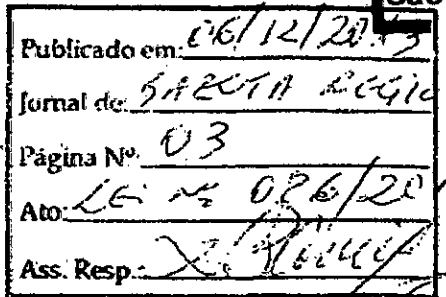 Publicado em: 06/12/20
Jornal de: GAZETA REGIO
Página Nº 03
Ato: LEI Nº 026/20
Ass. Resp.: